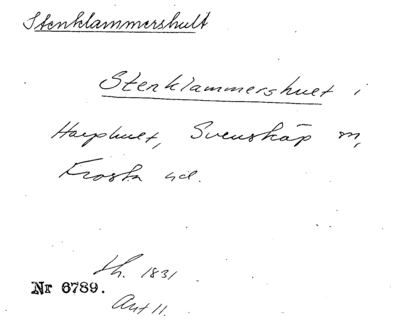 Stenklammershult
Stenklammershult i
Harphult, Svensköp sn,
Frosta hd.
Lh. 1831
Nr 6789.
Ant 11.